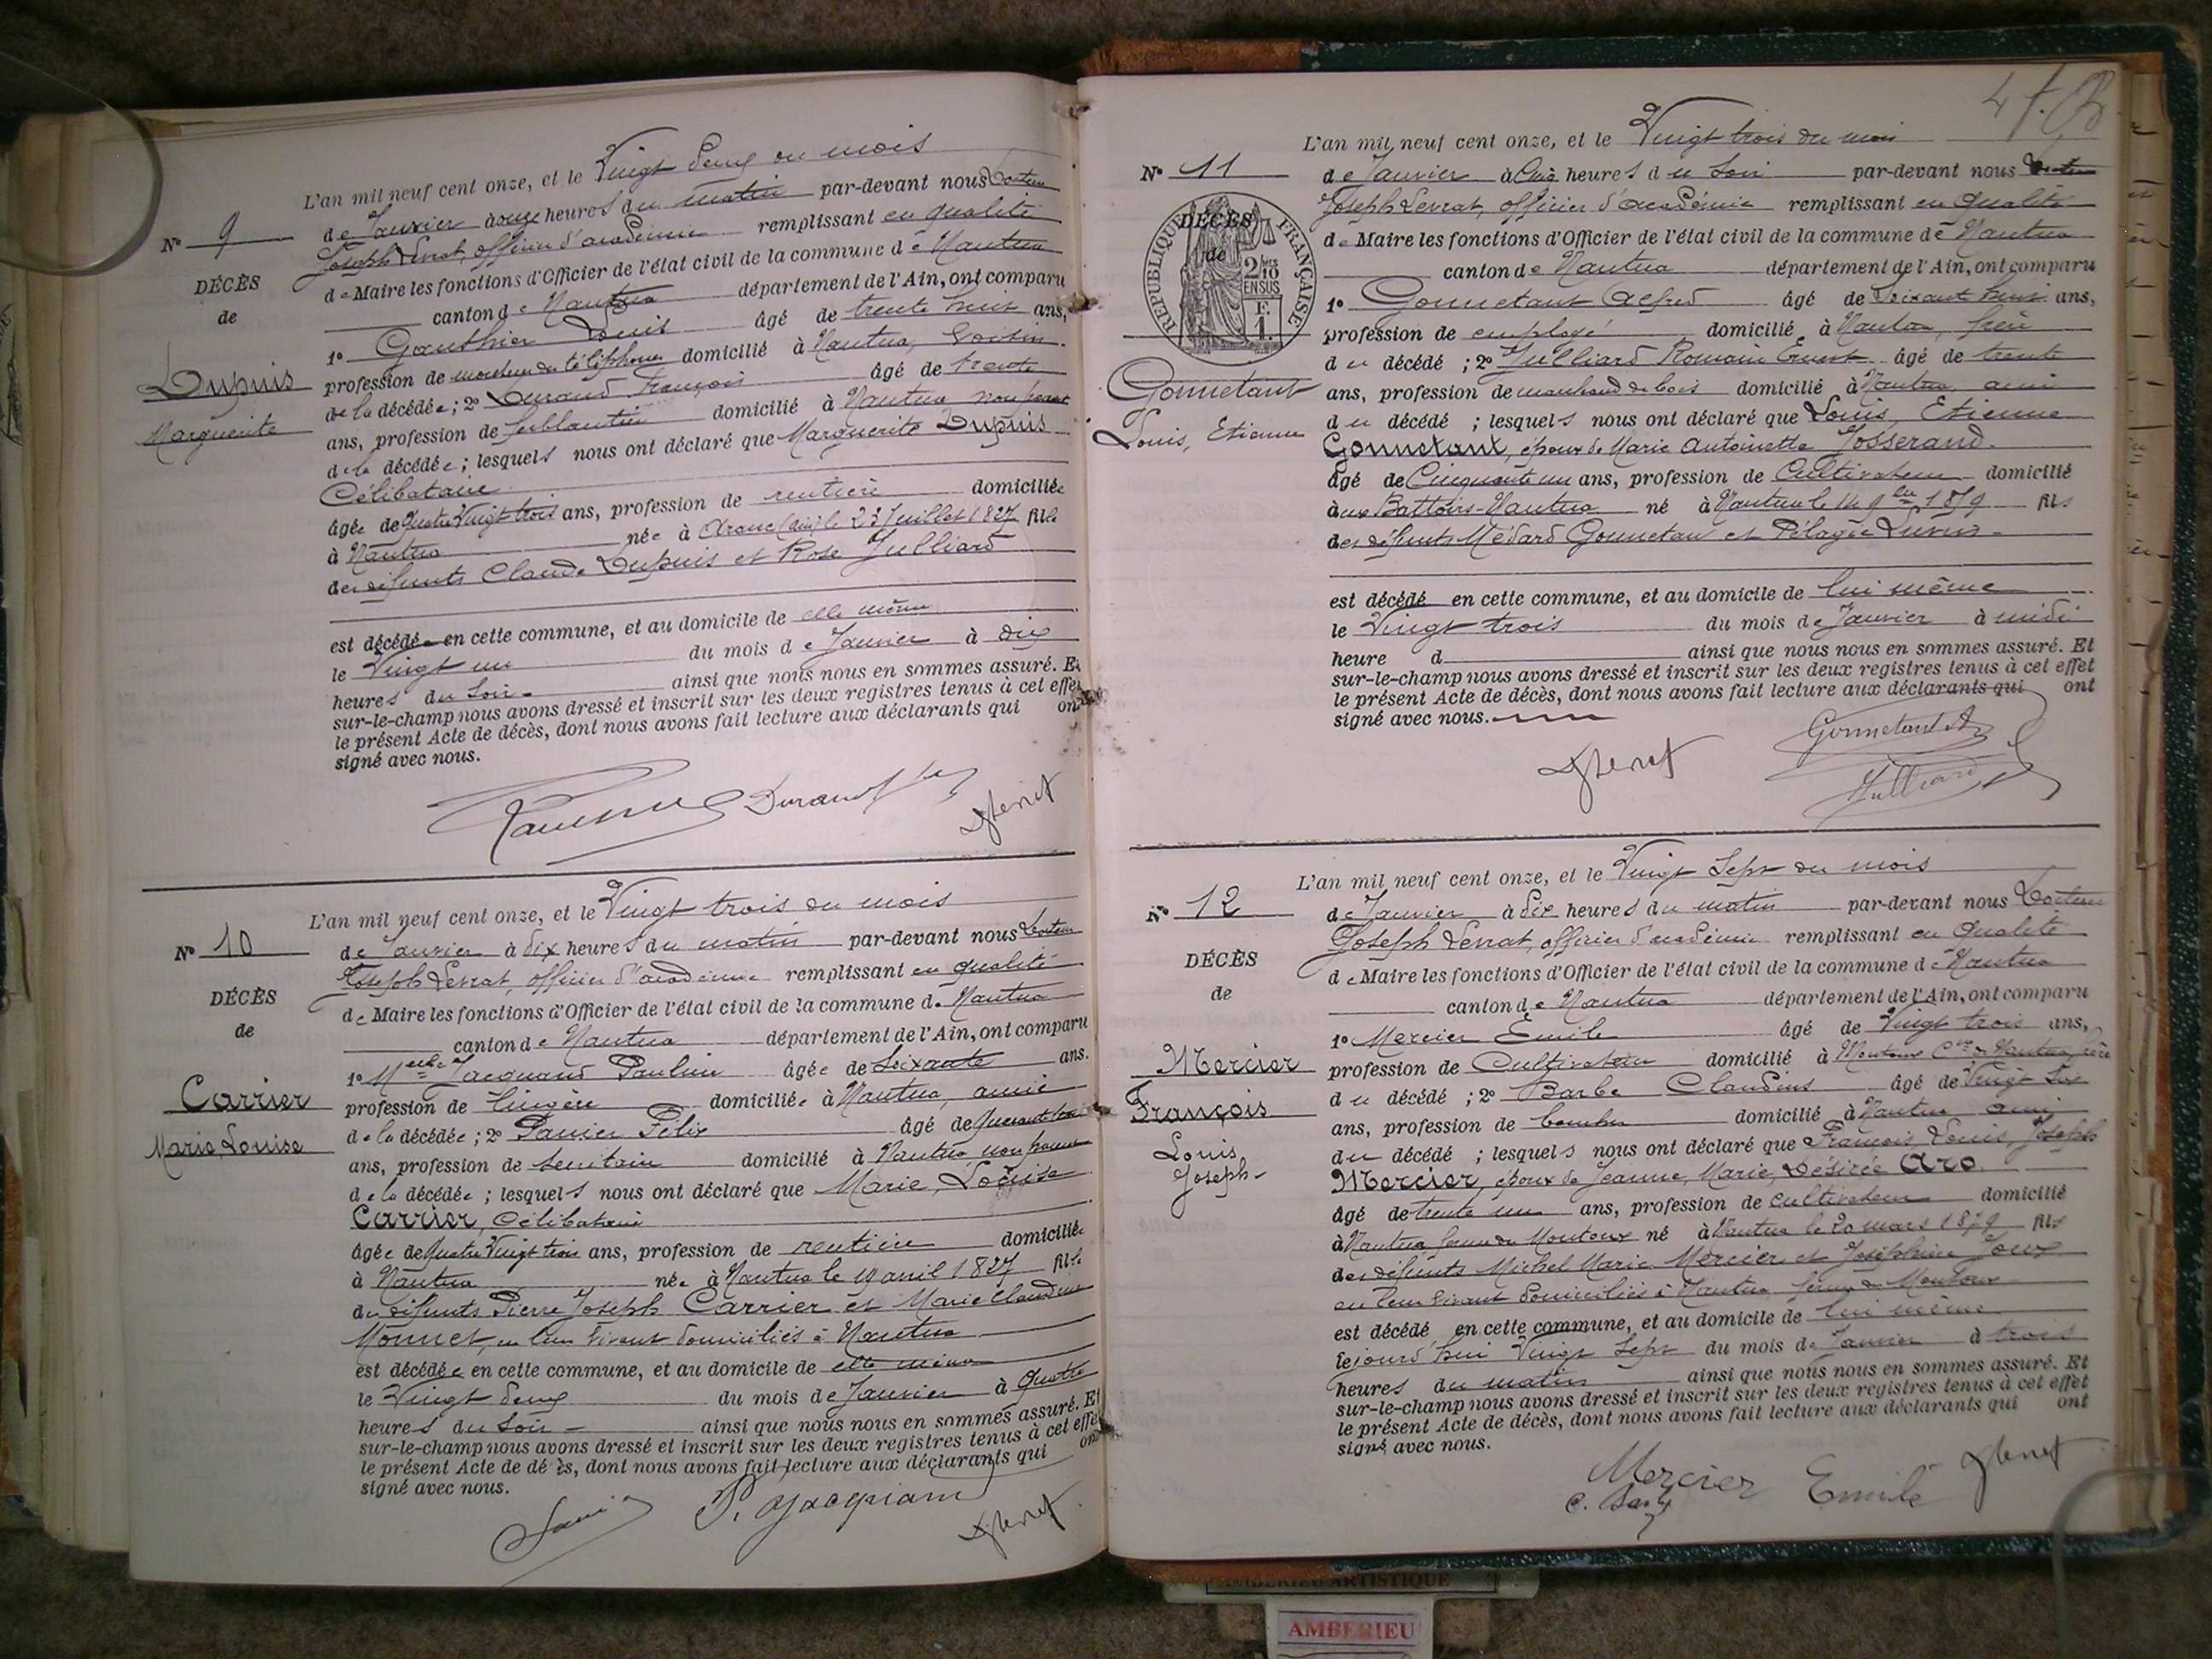 L'an mil neuf cent onze, et le Vingt deux du mois
N° 9
de Janvier à onze heures du matin par-devant nous Docteur
Joseph Levrat, officier d'académie remplissant en qualité
DÉCÈS
de Maire les fonctions d'Officier de l'état civil de la commune de Nantua
de
canton de Nantua département de l'Ain, ont comparu
1° Gauthier Louis âgé de trente huit ans,
Dupuis
profession de monteur de téléphones domicilié à Nantua, voisin
de la décédée; 2° Durand François âgé de trente
Marguerite
ans, profession de ferblantier domicilié à Nantua non parent
de la décédée; lesquels nous ont déclaré que Marguerite Dupuis
Célibataire
âgée de quatre Vingt trois ans, profession de rentière domiciliée
à Nantua née à Aranc (Ain) le 23 Juillet 1827 fille
des défunts Claude Dupuis et Rose Julliard
est décédée en cette commune, et au domicile de elle même
le Vingt un du mois de Janvier à dix
heures du Soir ainsi que nous nous en sommes assuré. Et
sur-le-champ nous avons dressé et inscrit sur les deux registres tenus à cet effet
le présent Acte de décès, dont nous avons fait lecture aux déclarants qui ont
signé avec nous.
Durand
L'an mil neuf cent onze, et le Vingt trois du mois
N° 10
de Janvier à dix heures du matin par-devant nous Docteur
Joseph Levrat, officier d'académie remplissant en qualité
DÉCÈS
de Maire les fonctions d'Officier de l'état civil de la commune de Nantua
de
canton de Nantua département de l'Ain, ont comparu
1° Melle Jacquand Pauline âgée de Soixante ans.
Carrier
profession de lingère domiciliée à Nantua, amie
de la décédée; 2° Panier Félix âgé de
Marie Louise
ans, profession de secrétaire domicilié à Nantua non parent
de la décédée; lesquels nous ont déclaré que Marie, Louise
Carrier, Célibataire
âgée de quatre Vingt trois ans, profession de rentière domiciliée
à Nantua née à Nantua le 19 avril 1827 fille
des défunts Pierre Joseph Carrier et Marie Claudine
Monnet, en leur vivant domiciliés à Nantua
est décédée en cette commune, et au domicile de elle même
le Vingt deux du mois de Janvier à quatre
heures du Soir ainsi que nous nous en sommes assuré. Et
sur-le-champ nous avons dressé et inscrit sur les deux registres tenus à cet effet
le présent Acte de décès, dont nous avons fait lecture aux déclarants qui ont
signé avec nous.
P. Jacquand
L'an mil neuf cent onze, et le Vingt trois du mois
N° 11
de Janvier à heures du Soir par-devant nous Docteur
Joseph Levrat, officier d'académie remplissant en qualité
DÉCÈS
de
RÉPUBLIQUE FRANÇAISE
2/10 EN SUS
F. 1.
de Maire les fonctions d'Officier de l'état civil de la commune de Nantua
canton de Nantua département de l'Ain, ont comparu
1° Gonnetant Alfred âgé de ans,
profession de employé domicilié à Nantua, frère
du décédé; 2° Julliard Romain Ernest âgé de trente
Gonnetant
ans, profession de marchand de bois domicilié à Nantua ami
Louis, Etienne
du décédé; lesquels nous ont déclaré que Louis, Etienne
Gonnetant, époux de Marie Antoinette Josserand.
âgé de Cinquante un ans, profession de Cultivateur domicilié
aux Battoirs-Nantua né à Nantua le 14 9bre 1859 fils
des défunts Médard Gonnetan et Pélagie
est décédé en cette commune, et au domicile de lui même
le Vingt trois du mois de Janvier à midi
heure d ainsi que nous nous en sommes assuré. Et
sur-le-champ nous avons dressé et inscrit sur les deux registres tenus à cet effet
le présent Acte de décès, dont nous avons fait lecture aux déclarants qui ont
signé avec nous.
Gonnetant A
Julliard
L'an mil neuf cent onze, et le Vingt Sept du mois
N° 12
de Janvier à dix heures du matin par-devant nous Docteur
Joseph Levrat, officier d'académie remplissant en qualité
DÉCÈS
de Maire les fonctions d'Officier de l'état civil de la commune de Nantua
de
canton de Nantua département de l'Ain, ont comparu
1° Mercier Emile âgé de Vingt trois ans,
Mercier
profession de Cultivateur domicilié à Montoux Cne de Nantua, frère
du décédé; 2° Barbe Claudius âgé de Vingt Six
François
ans, profession de boucher domicilié à Nantua ami
Louis
du décédé; lesquels nous ont déclaré que François, Louis, Joseph
Joseph
Mercier, époux de Jeanne, Marie, Désirée Aro
âgé de trente un ans, profession de cultivateur domicilié
à Nantua ferme de Montoux né à Nantua le 20 mars 1879 fils
des défunts Michel Marie Mercier et Joséphine Joux
en leur vivant domiciliés à Nantua ferme de Montoux
est décédé en cette commune, et au domicile de lui même
le jourd'hui Vingt Sept du mois de Janvier à trois
heures du matin ainsi que nous nous en sommes assuré. Et
sur-le-champ nous avons dressé et inscrit sur les deux registres tenus à cet effet
le présent Acte de décès, dont nous avons fait lecture aux déclarants qui ont
signé avec nous.
Mercier Emile
AMBERIEU ARTISTIQUE
AMBERIEU